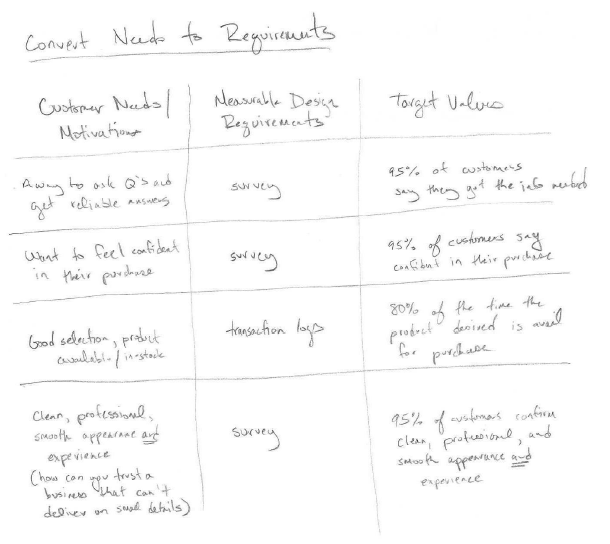 Convert Needs to Requirements
Customer Needs/
Motivations
Measurable Design
Requirements
Target Values
A way to ask Q's and
get reliable answers
survey
95% of customers
say they got the info needed
Want to feel confident
in their purchase
survey
95% of customers say
confident in their purchase
Good selection, product
available/in-stock
transaction logs
80% of the time the
product desired is avail
for purchase
Clean, professional,
smooth appearance and
experience
(how can you trust a
business that can't
deliver on small details)
survey
95% of customers confirm
clean, professional, and
smooth appearance and
experience